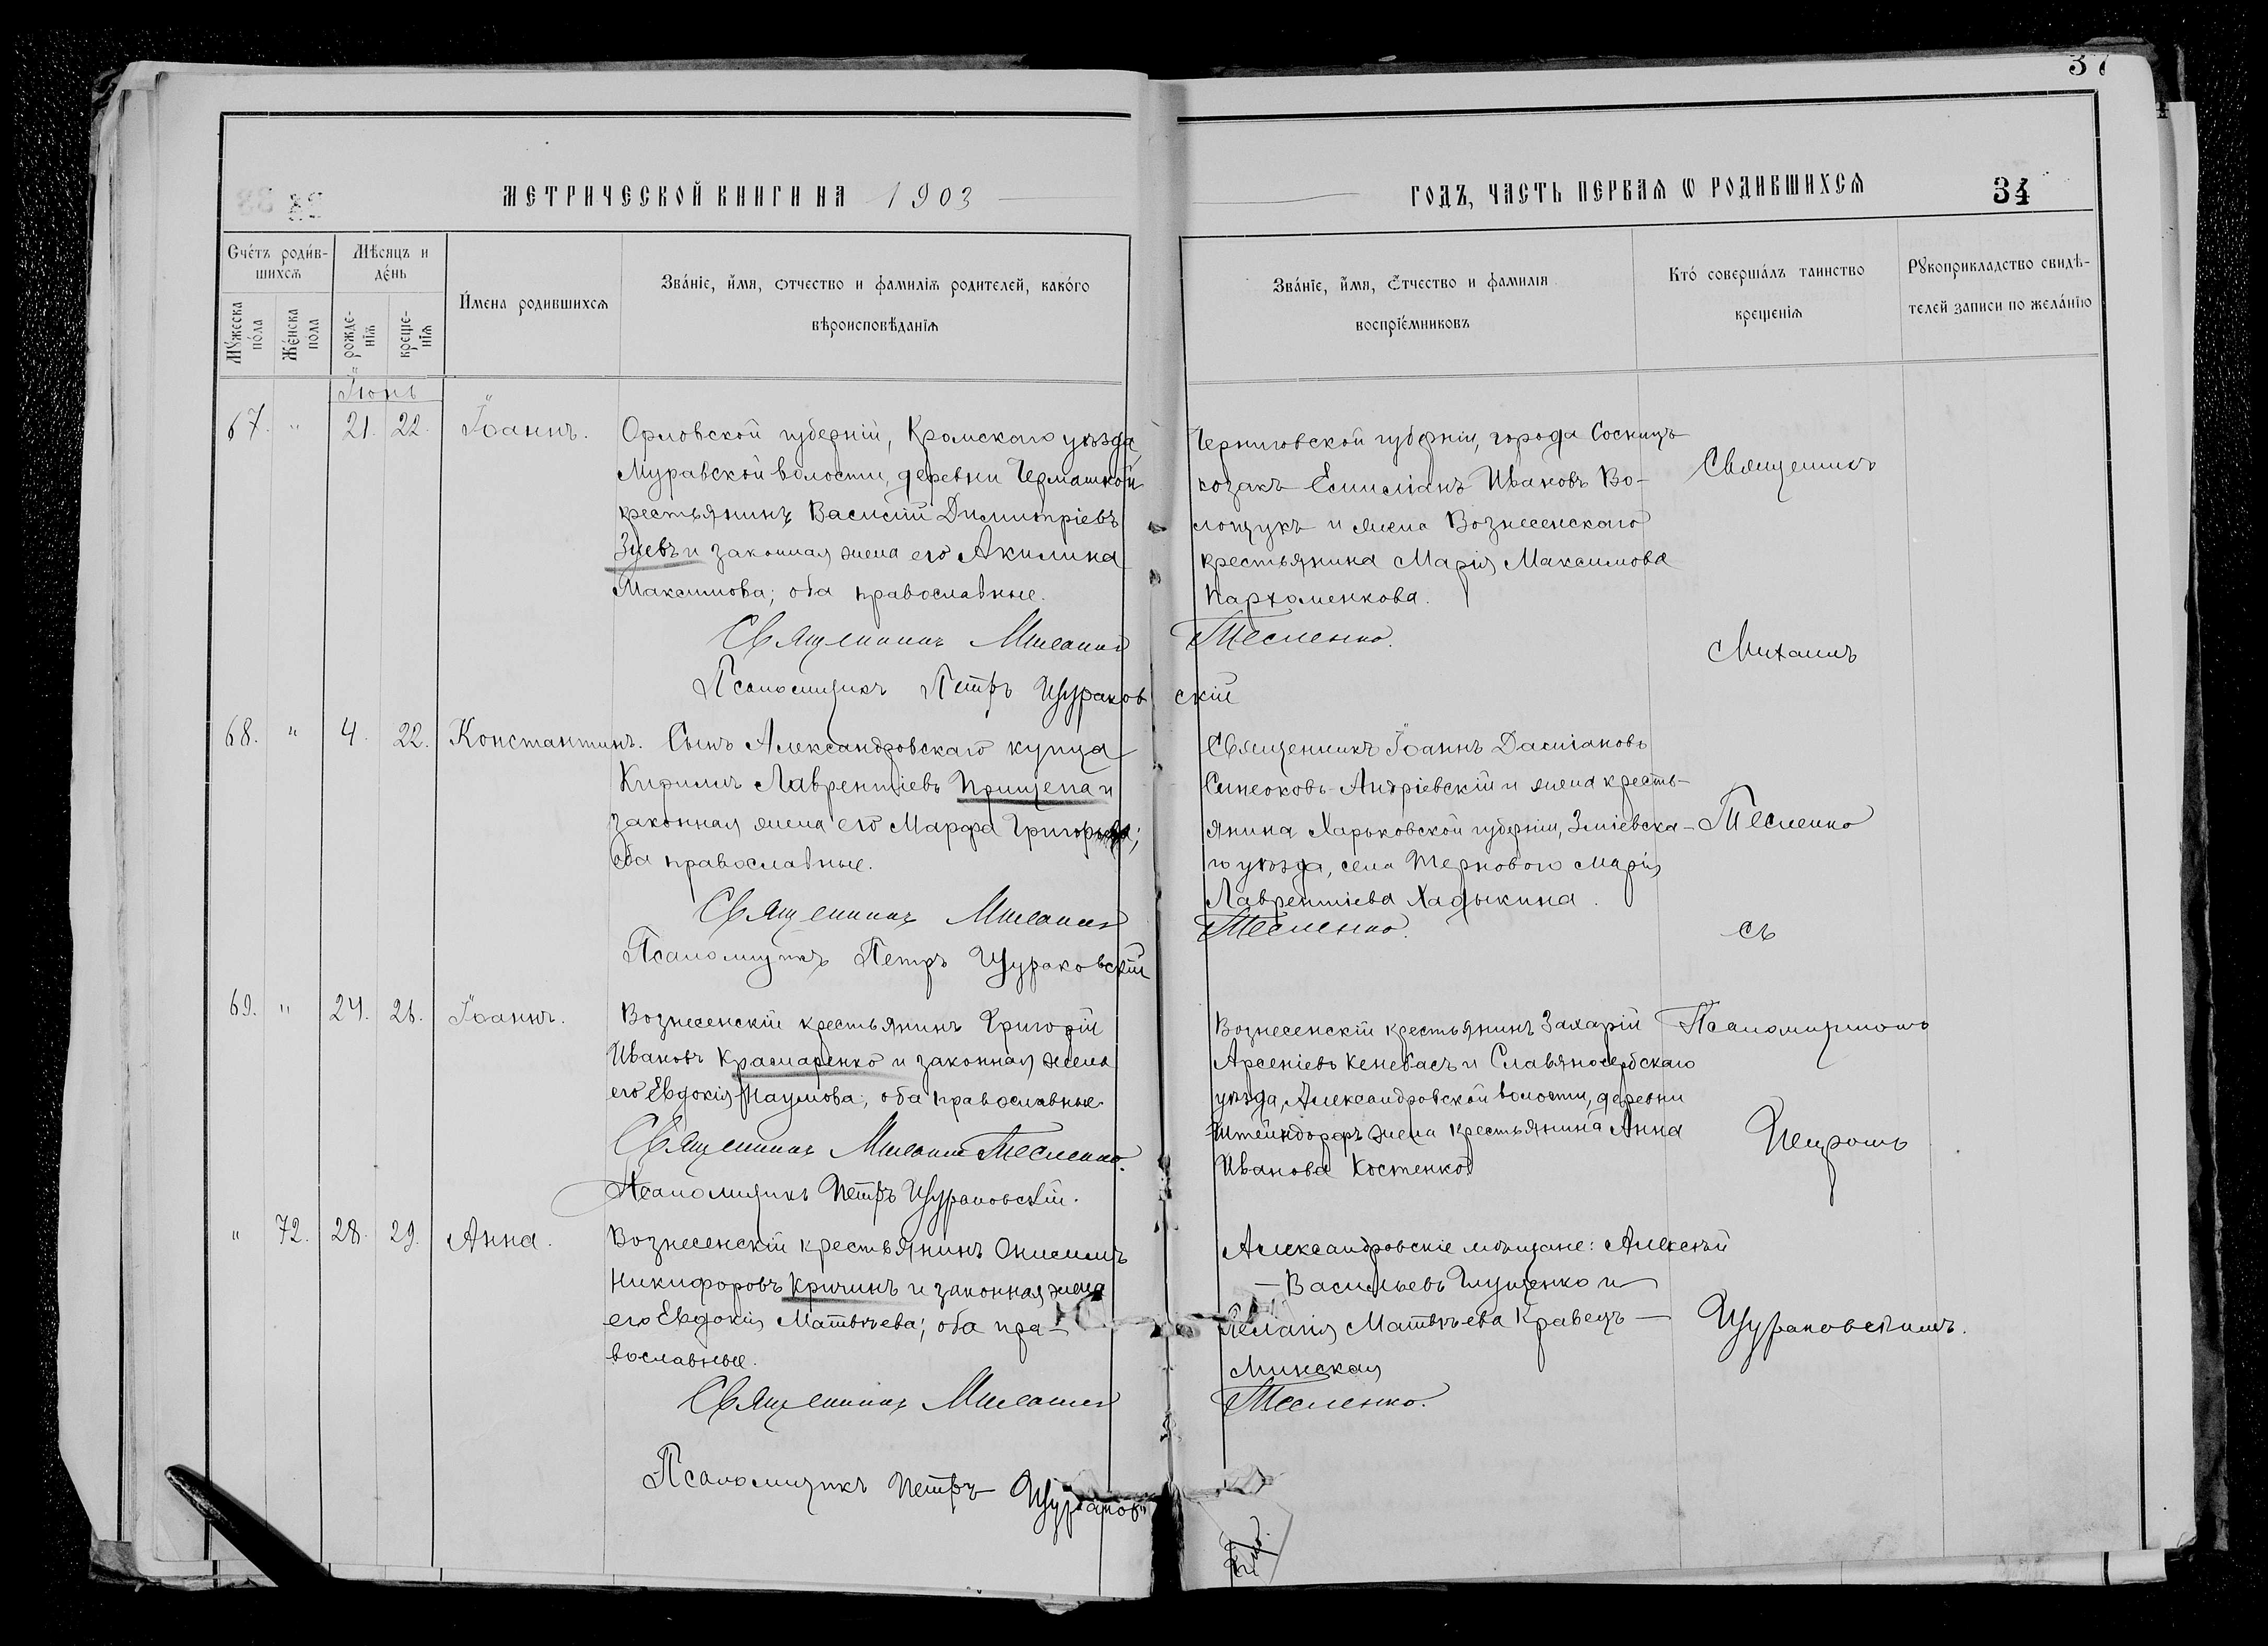 37
МЕТРИЧЕСКОЙ КНИГИ НА 1903
ГОДЪ, ЧАСТЬ ПЕРВАЯ Ѡ РОДИВШИХСЯ
34
Счéтъ роди́в-
шихся
Мѣсяцъ и
дéнь
Му́жеска
по́ла
Жéнска
пола
рожде-
нія
креще-
нія
И́мена родившихся
Зва́ніе, и́мя, ѻтчество и фамилія родителей, како́го
вѣроисповѣ́данія
Зва́ніе, и́мя, ѻ́тчество и фамилія
воспріéмниковъ
Кто́ соверша́лъ таинство
крещенія
Рꙋкоприкладство свидѣ-
телей записи по жела́нію
Іюнь
67. " 21. 22. Іоаннъ.
Орловской губерніи, Кромскаго уѣзда
Муравской волости, деревни Чермошной
крестьянинъ Василій Димитріевъ
Зуевъ и законная жена его Акилина
Максимова; оба православные.
Священникъ Михаилъ Тесленко.
Псаломщикъ Петръ Щураковскій
Черниговской губерніи, города Сосницъ
козакъ Емиліанъ Ивановъ Во-
лощукъ и жена Вознесенскаго
крестьянина Марія Максимова
Пархоменкова.
Священникъ
Михаилъ
68. " 4. 22. Константинъ.
Сынъ Александровскаго купца
Кириллъ Лаврентіевъ Прищепа и
законная жена его Марфа Григорьева;
оба православные.
Священникъ Михаилъ Тесленко.
Псаломщикъ Петръ Щураковскій
Священникъ Іоаннъ Даміановъ
Синеоковъ-Андріевскій и жена кресть-
янина Харьковской губерніи, Зміевска-
го уѣзда, села Терноваго Марія
Лаврентіева Хадыкина.
Тесленко
съ
69. " 24. 26. Іоаннъ.
Вознесенскій крестьянинъ Григорій
Ивановъ Крамаренко и законная жена
его Евдокія Наумова; оба православные.
Священникъ Михаилъ Тесленко.
Псаломщикъ Петръ Щураковскій.
Вознесенскій крестьянинъ Захарій
Арсеніевъ Кенебасъ и Славяносербскаго
уѣзда, Александровской волости, деревни
Штейндорфъ жена крестьянина Анна
Иванова Костенко
Псаломщикомъ
Петромъ
" 72. 28. 29. Анна.
Вознесенскій крестьянинъ Онисимъ
Никифоровъ Кричинъ и законная жена
его Евдокія Матвѣева; оба пра-
вославные.
Священникъ Михаилъ Тесленко.
Псаломщикъ Петръ Щураков
Александровскіе мѣщане: Алексѣй
Васильевъ Глущенко и
Пелагія Матвѣева Кравецъ-
Минская
Щураковскимъ.